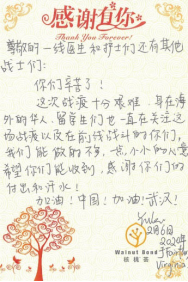 感谢有你
Thank You Forever!
尊敬的一线医生和护士们还有其他
战士们:
你们辛苦了!
这次战疫十分艰难,身在海
外的华人、留学生们也一直在关注这
场战疫以及在前线战斗的你们,
我们能做的不多,一点小小的心意
希望你们能收到,感谢你们的
付出和汗水!
加油!中国!加油!武汉!
Walnut Bond
核桃荟
2月6日
2020年
Virginia